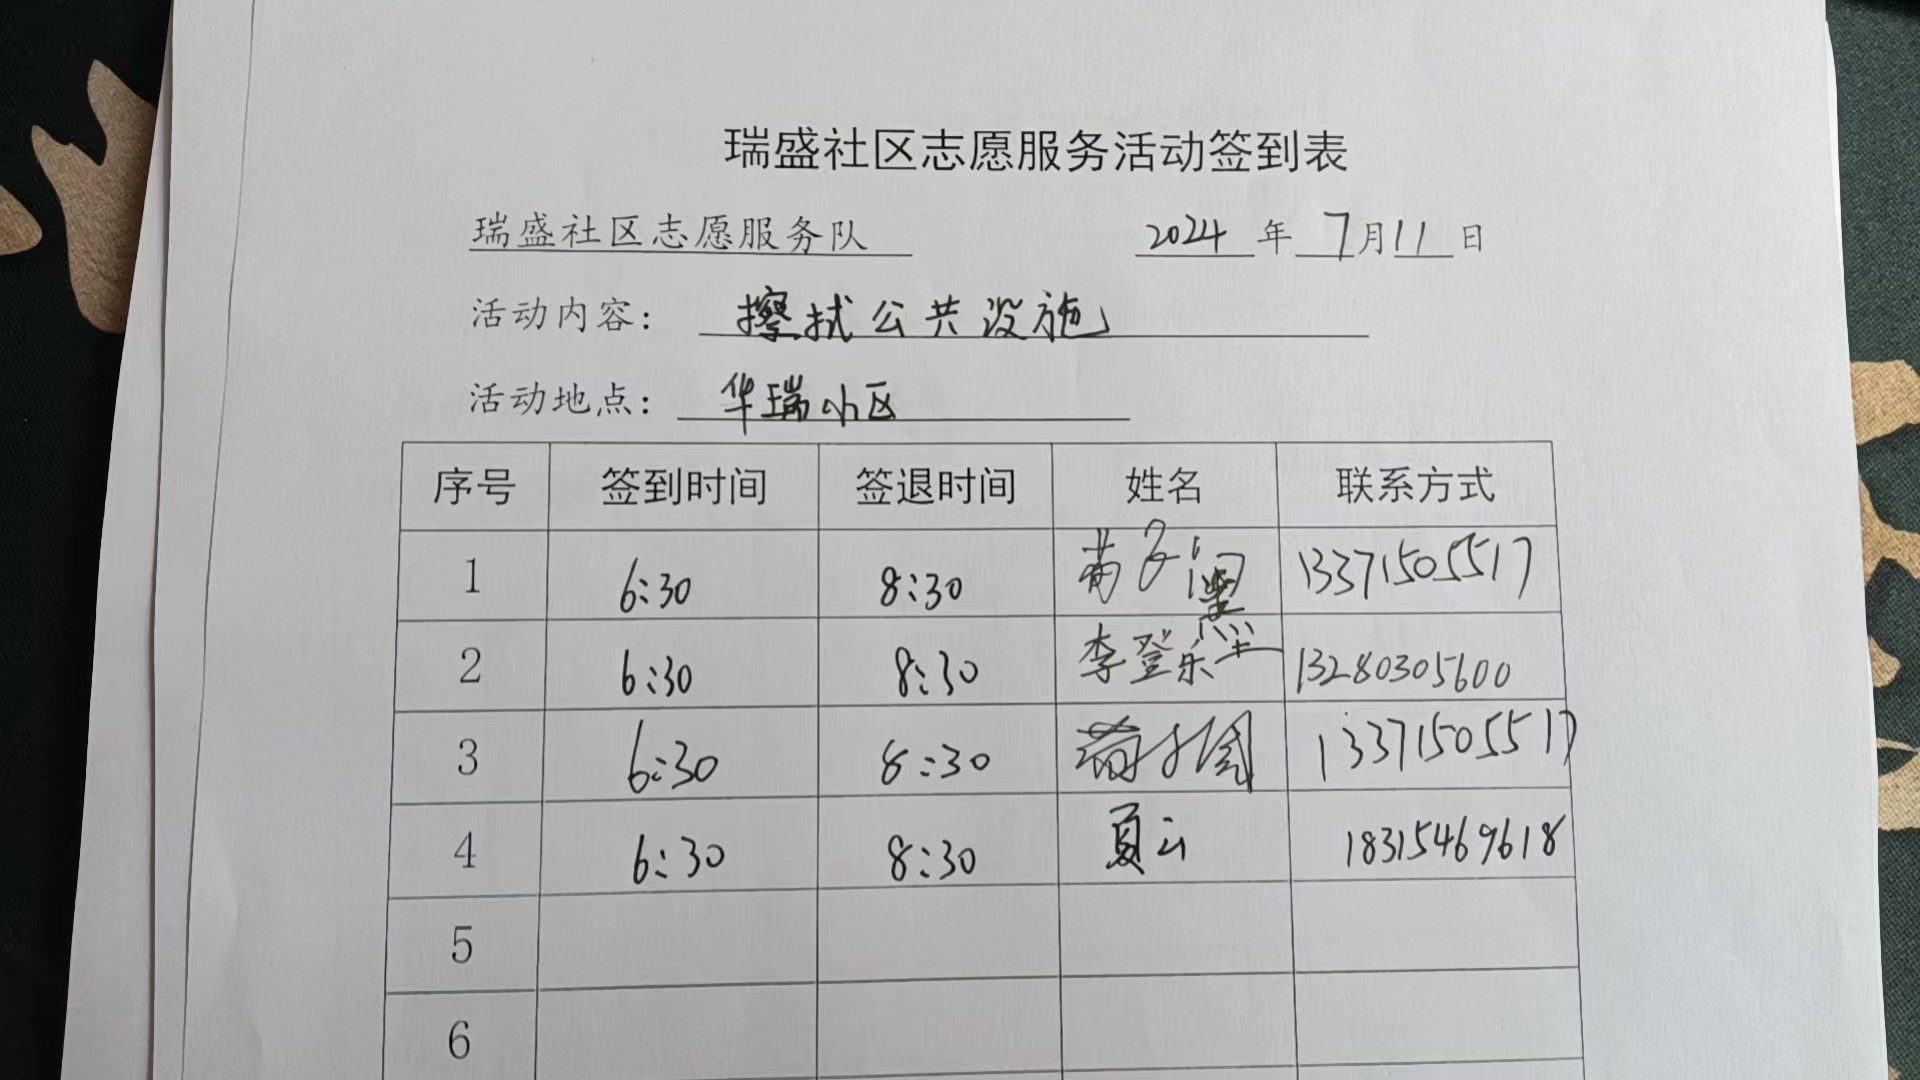 瑞盛社区志愿服务活动签到表
瑞盛社区志愿服务队 2024 年 7月11 日
活动内容: 擦拭公共设施
活动地点: 华瑞小区
序号 签到时间 签退时间 姓名 联系方式
1 6:30 8:30 13371505517
2 6:30 8:30 李登乐 13280305600
3 6:30 8:30 13371505517
4 6:30 8:30 夏云 18315469618
5
6